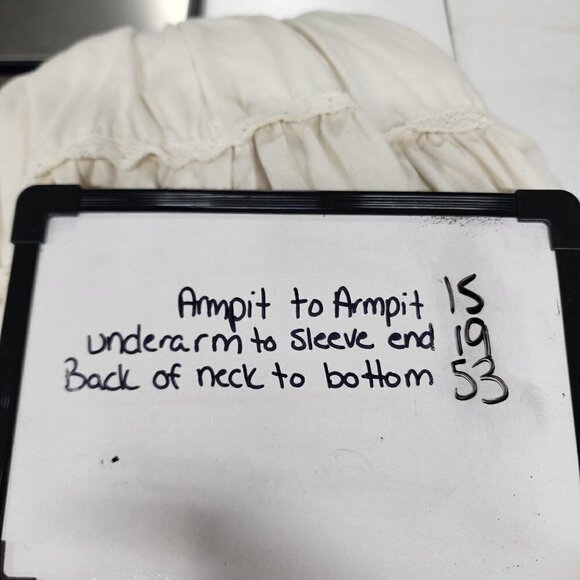 Armpit to Armpit 15
underarm to sleeve end 19
Back of neck to bottom 53